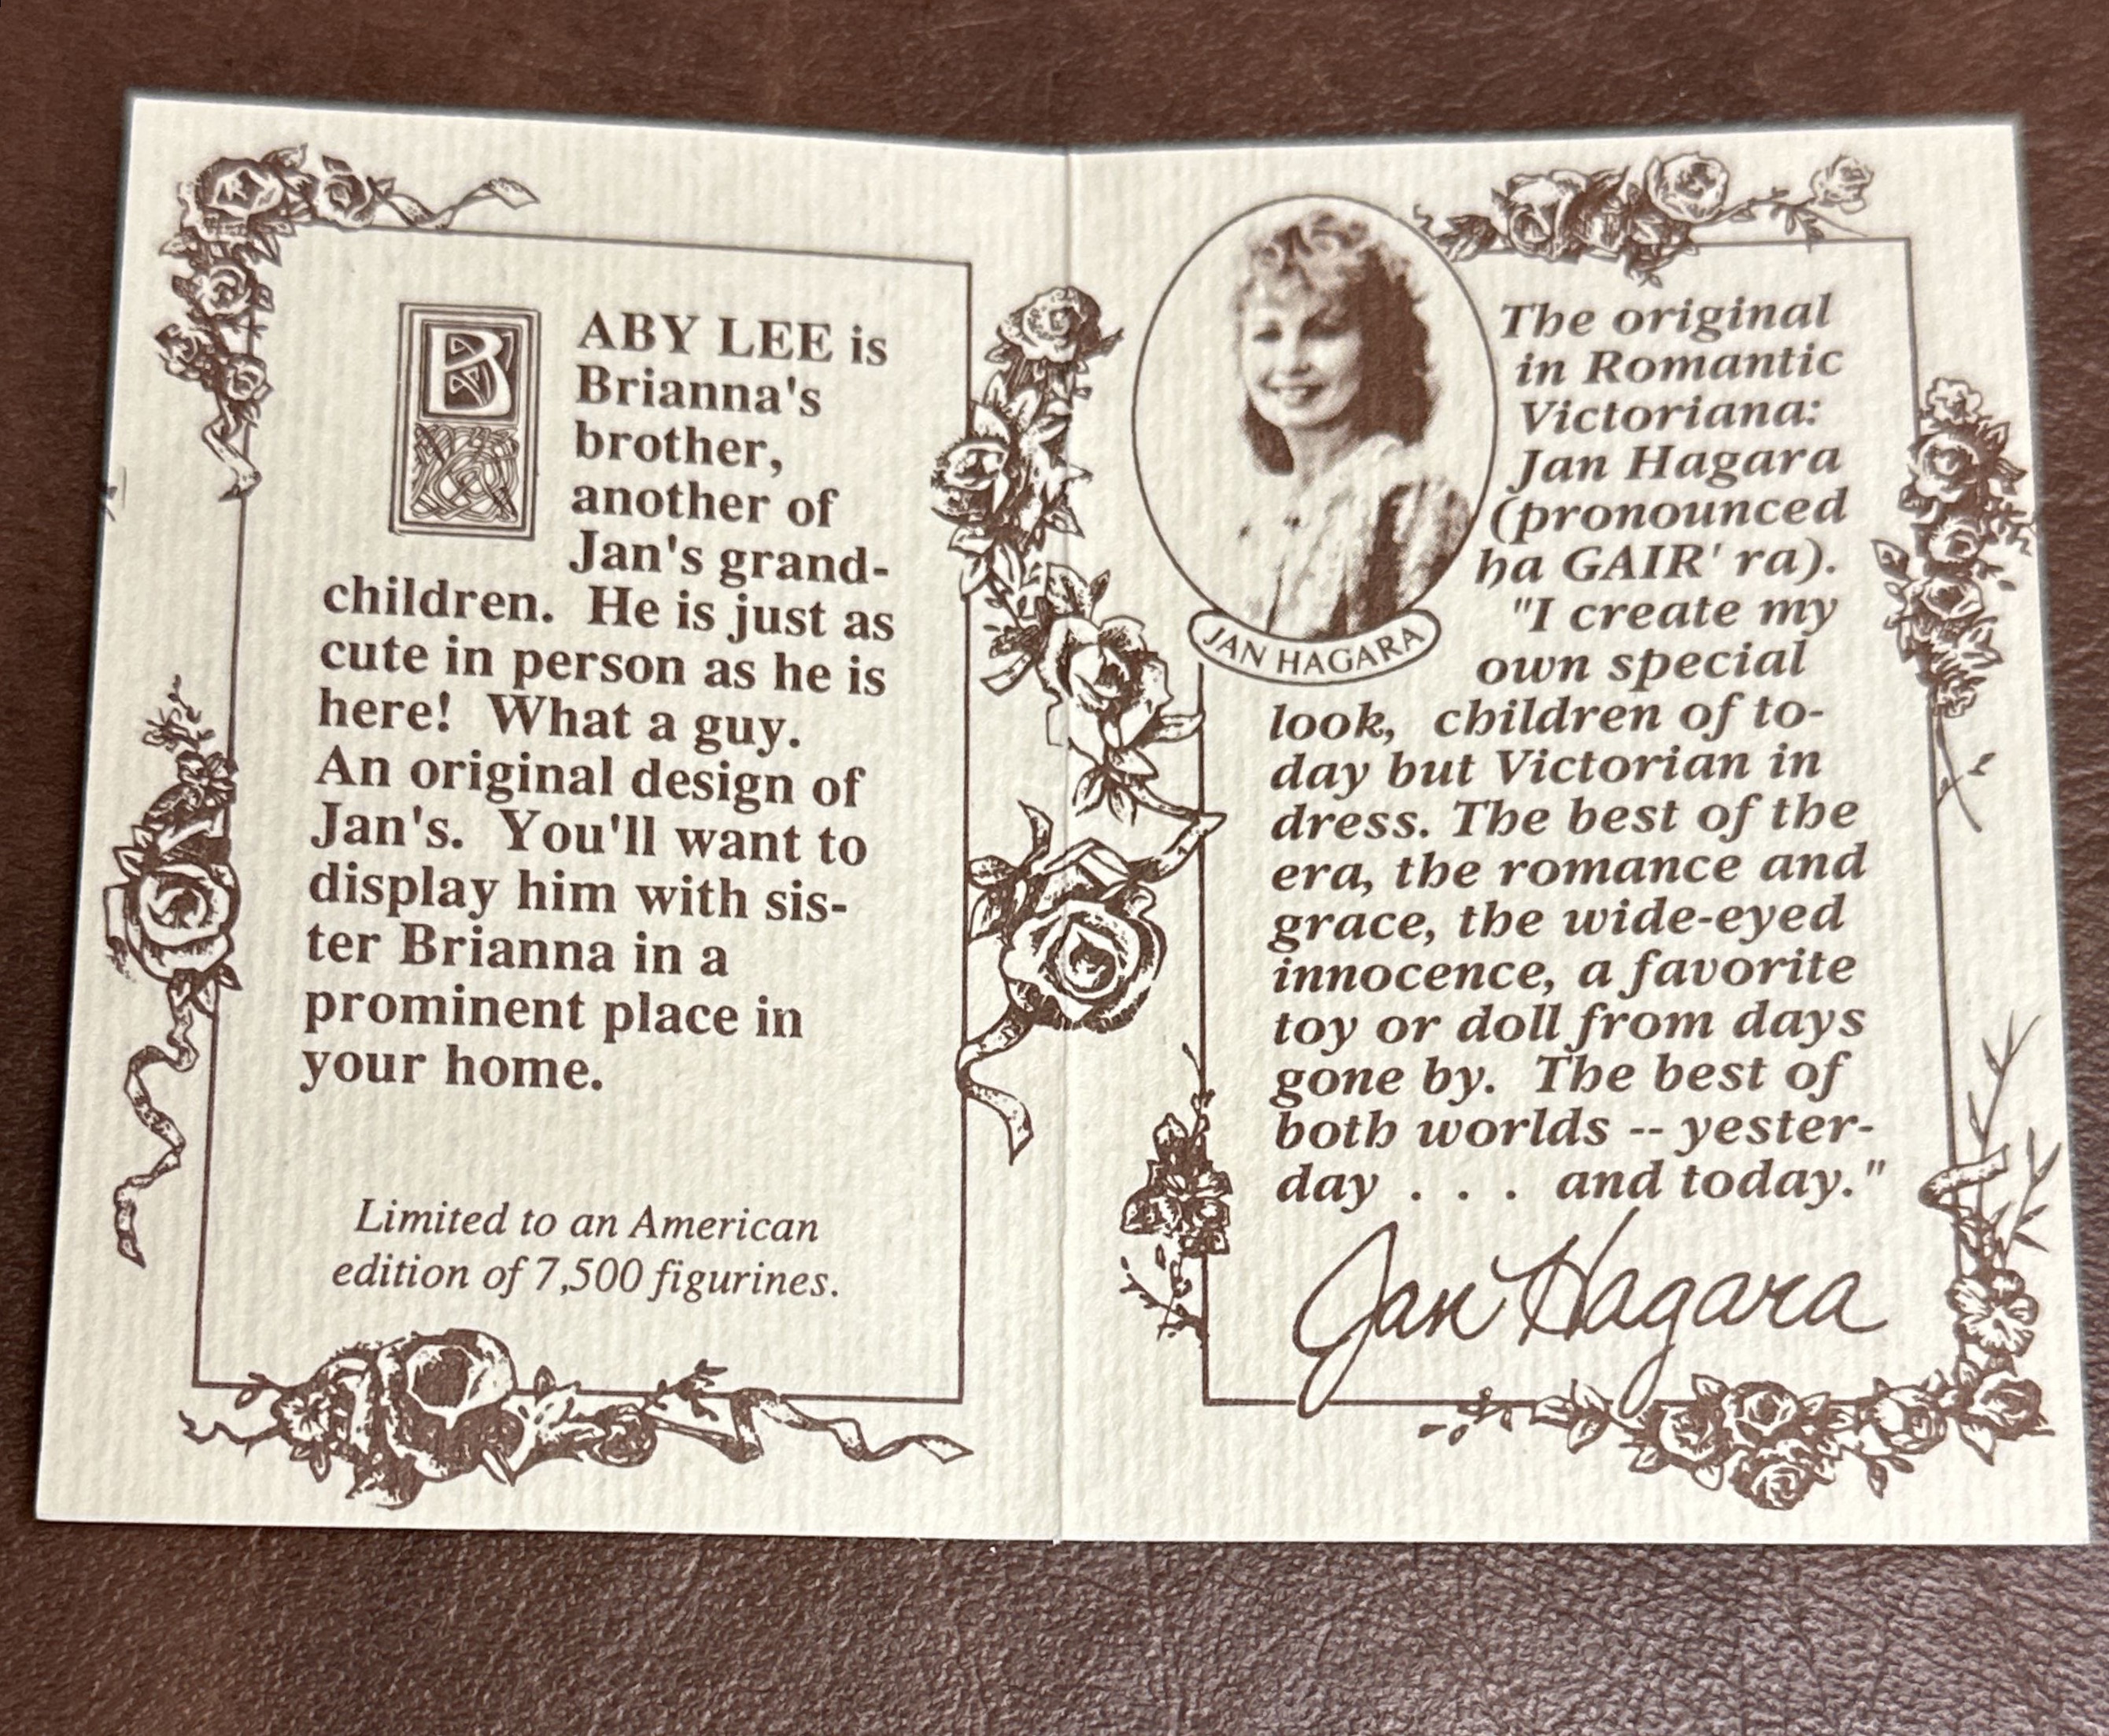 BABY LEE is
Brianna's
brother,
another of
Jan's grand-
children. He is just as
cute in person as he is
here! What a guy.
An original design of
Jan's. You'll want to
display him with sis-
ter Brianna in a
prominent place in
your home.
Limited to an American
edition of 7,500 figurines.
JAN HAGARA
The original
in Romantic
Victoriana:
Jan Hagara
(pronounced
ha GAIR' ra).
"I create my
own special
look, children of to-
day but Victorian in
dress. The best of the
era, the romance and
grace, the wide-eyed
innocence, a favorite
toy or doll from days
gone by. The best of
both worlds -- yester-
day . . . and today."
Jan Hagara